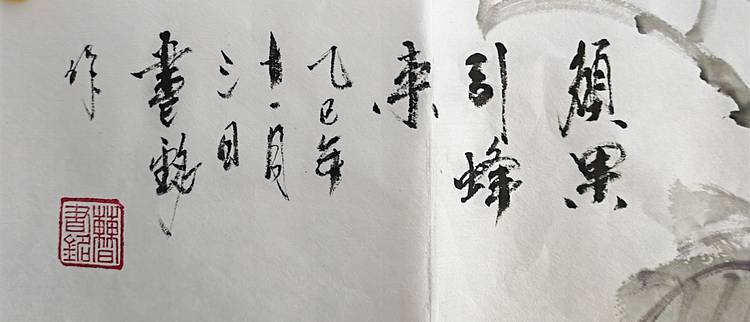 碩果
引蜂
来
乙巳年
十一月
三日
書銘
作
蕭
書銘